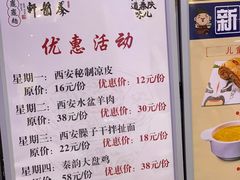 优惠活动
星期一：西安秘制凉皮
原价：16元/份 优惠价：12元/份
星期二：西安水盆羊肉
原价：38元/份 优惠价：30元/份
星期三：西安臊子干拌扯面
原价：22元/份 优惠价：18元/份
星期四：秦韵大盘鸡
原价：58元/份 优惠价：38元/份
新